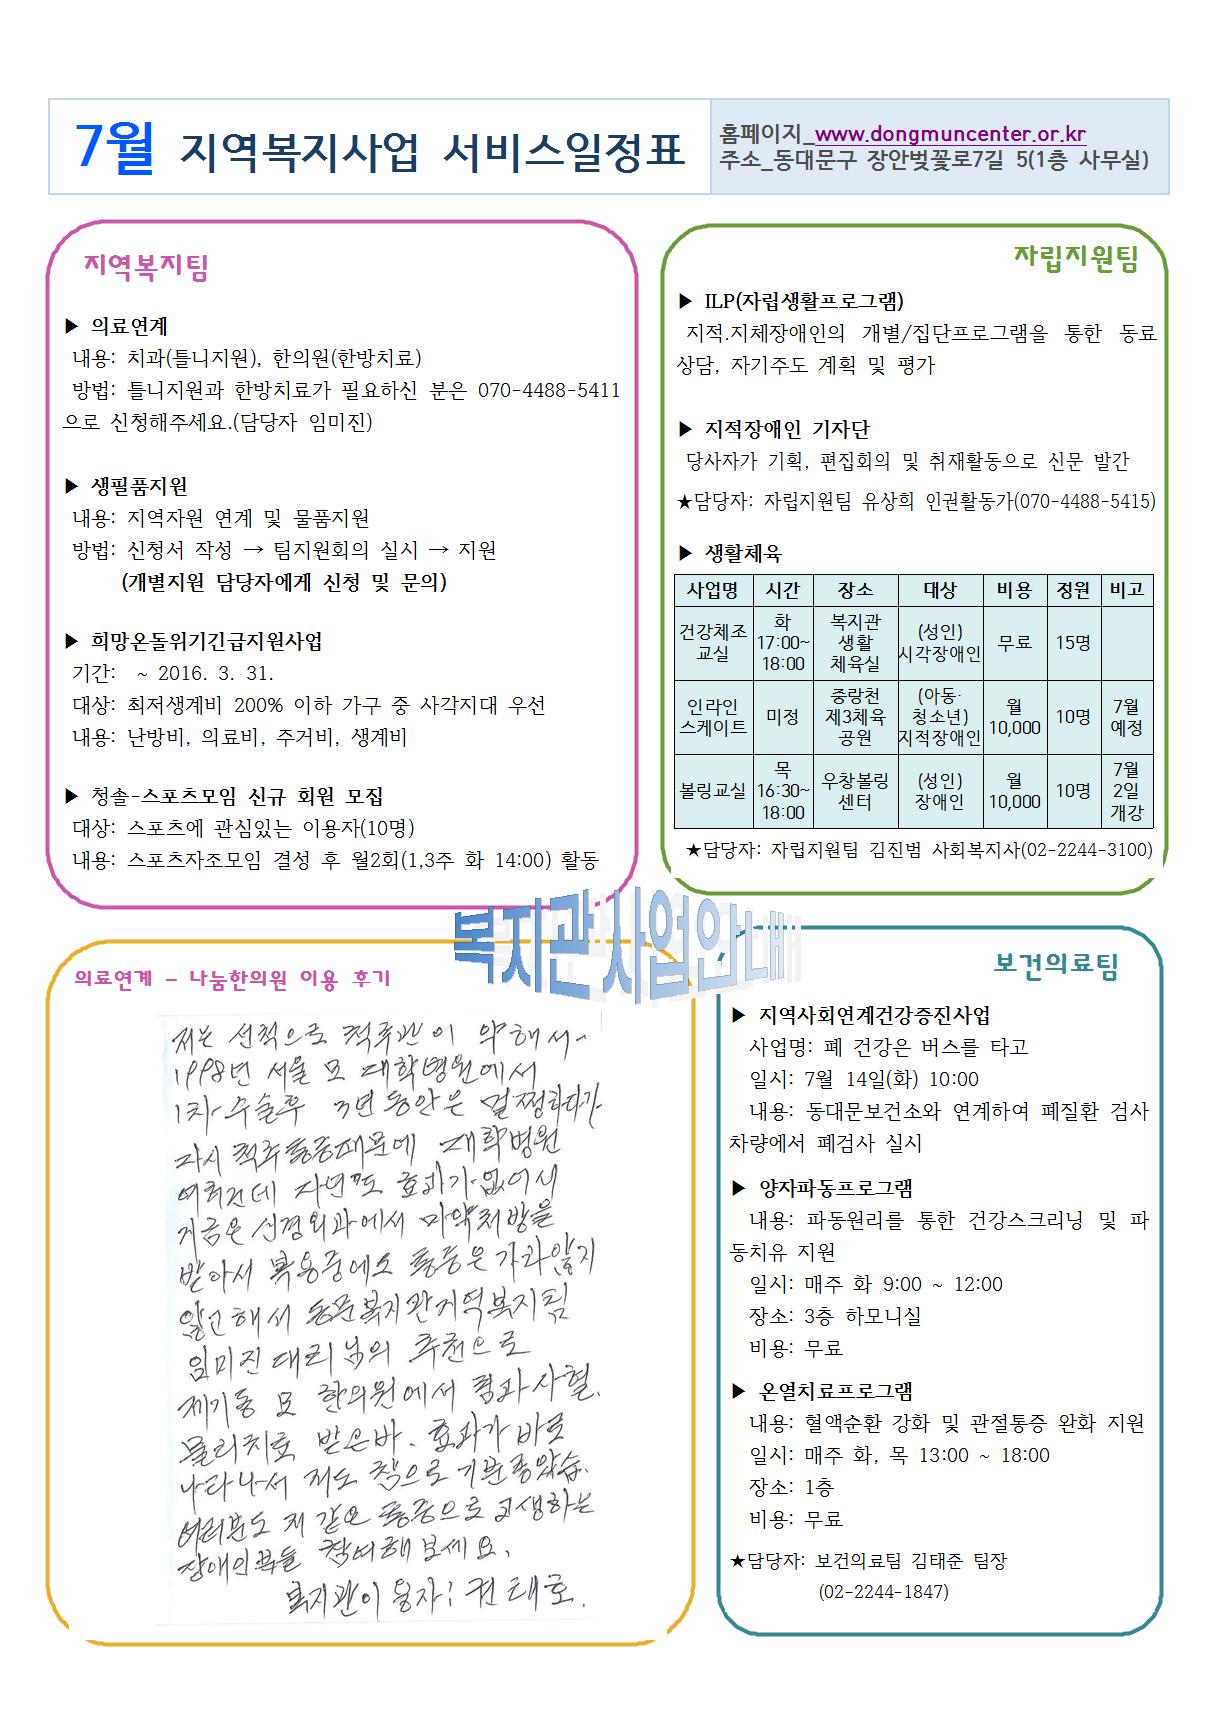 7월 지역복지사업 서비스일정표
홈페이지_www.dongmuncenter.or.kr
주소_동대문구 장안벚꽃로7길 5(1층 사무실)
지역복지팀
▶ 의료연계
내용: 치과(틀니지원), 한의원(한방치료)
방법: 틀니지원과 한방치료가 필요하신 분은 070-4488-5411
으로 신청해주세요.(담당자 임미진)
▶ 생필품지원
내용: 지역자원 연계 및 물품지원
방법: 신청서 작성 → 팀지원회의 실시 → 지원
(개별지원 담당자에게 신청 및 문의)
▶ 희망온돌위기긴급지원사업
기간: ~ 2016. 3. 31.
대상: 최저생계비 200% 이하 가구 중 사각지대 우선
내용: 난방비, 의료비, 주거비, 생계비
▶ 청솔-스포츠모임 신규 회원 모집
대상: 스포츠에 관심있는 이용자(10명)
내용: 스포츠자조모임 결성 후 월2회(1,3주 화 14:00) 활동
자립지원팀
▶ ILP(자립생활프로그램)
지적.지체장애인의 개별/집단프로그램을 통한 동료
상담, 자기주도 계획 및 평가
▶ 지적장애인 기자단
당사자가 기획, 편집회의 및 취재활동으로 신문 발간
★담당자: 자립지원팀 유상희 인권활동가(070-4488-5415)
▶ 생활체육
사업명 시간 장소 대상 비용 정원 비고
건강체조교실 화 17:00~18:00 복지관 생활 체육실 (성인) 시각장애인 무료 15명
인라인 스케이트 미정 중랑천 제3체육 공원 (아동·청소년) 지적장애인 월 10,000 10명 7월 예정
볼링교실 목 16:30~18:00 우창볼링 센터 (성인) 장애인 월 10,000 10명 7월 2일 개강
★담당자: 자립지원팀 김진범 사회복지사(02-2244-3100)
복지관 사업안내
의료연계 - 나눔한의원 이용 후기
저는 선척으로 척추관이 약해서
1998년 서울 모 대학병원에서
1차 수술후 3년 동안은 멀쩡하다가
다시 척추통증때문에 대학병원
여러건데 다녀도 효과가 없어서
지금은 신경외과에서 마약처방을
받아서 복용중에도 통증은 가라앉지
않고해서 동문복지관지역복지팀
임미진 대리님의 추천으로
제기동 모 한의원에서 침과 사혈.
물리치료 받은바. 효과가 바로
나타나서 저도 참으로 기분좋았습.
여러분도 저 같은 통증으로 고생하는
장애인분들 참여해 보세요.
복지관이용자: 권태호.
보건의료팀
▶ 지역사회연계건강증진사업
사업명: 폐 건강은 버스를 타고
일시: 7월 14일(화) 10:00
내용: 동대문보건소와 연계하여 폐질환 검사
차량에서 폐검사 실시
▶ 양자파동프로그램
내용: 파동원리를 통한 건강스크리닝 및 파
동치유 지원
일시: 매주 화 9:00 ~ 12:00
장소: 3층 하모니실
비용: 무료
▶ 온열치료프로그램
내용: 혈액순환 강화 및 관절통증 완화 지원
일시: 매주 화, 목 13:00 ~ 18:00
장소: 1층
비용: 무료
★담당자: 보건의료팀 김태준 팀장
(02-2244-1847)